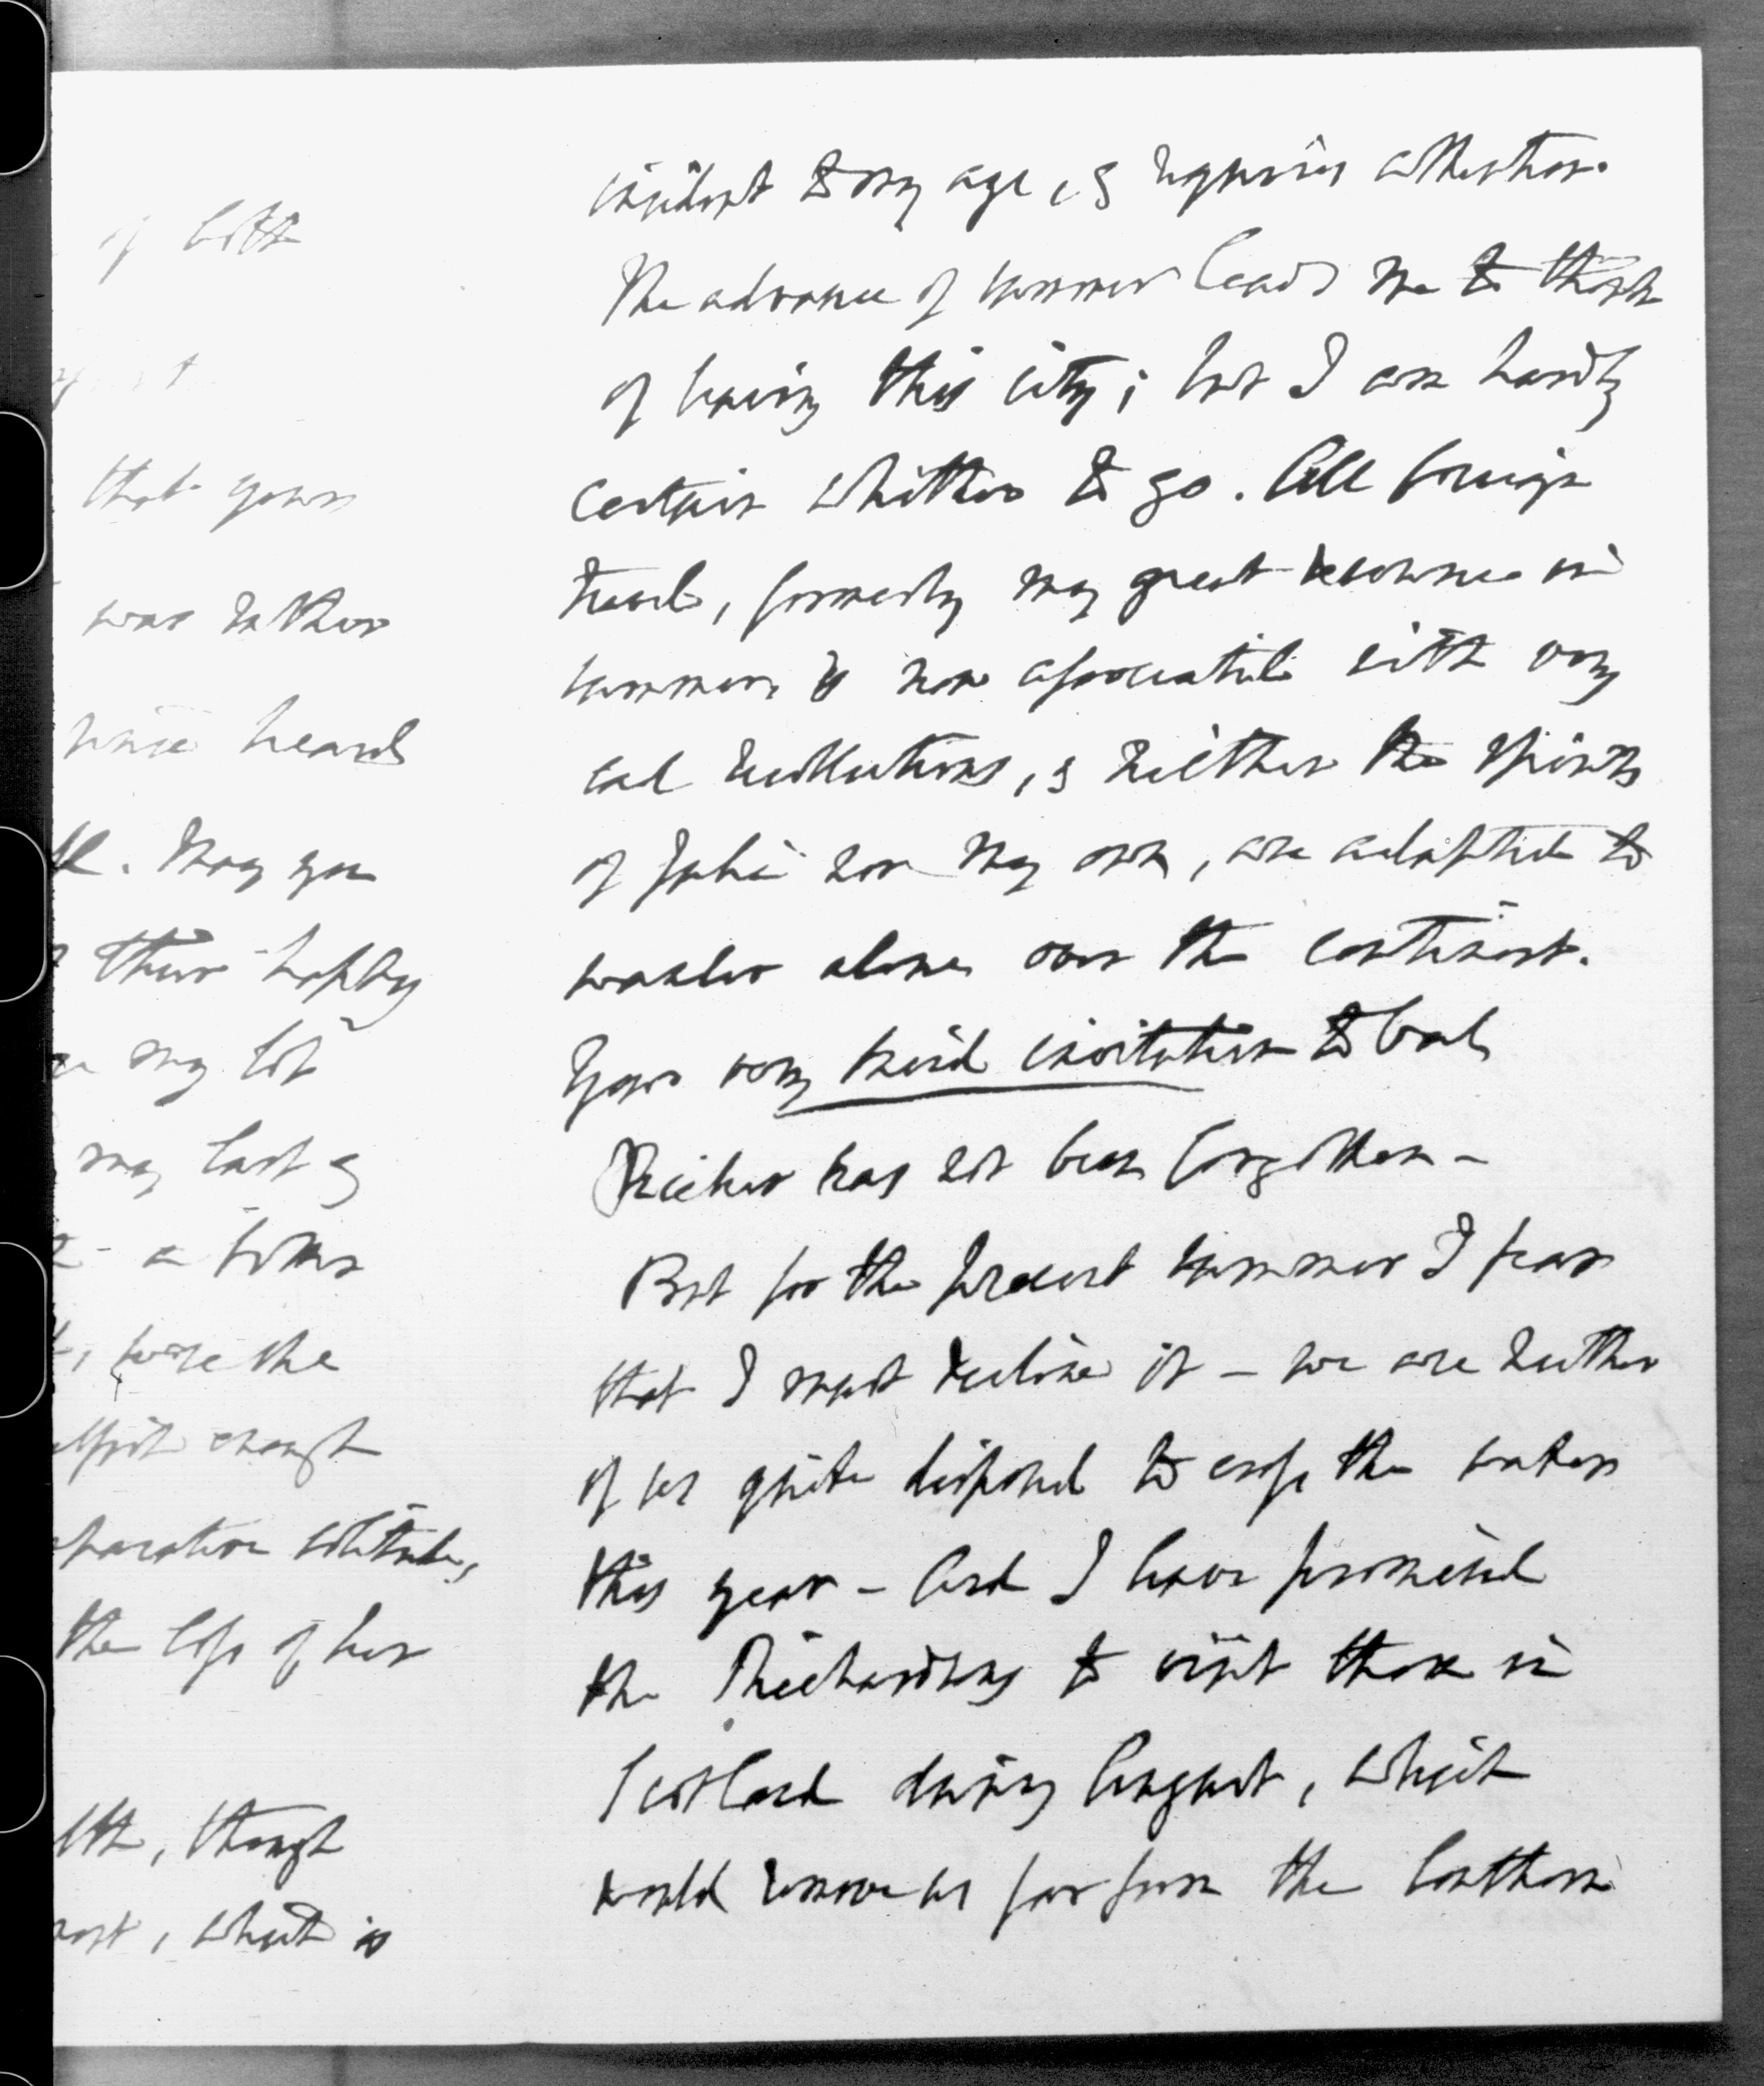 of both
that your
was rather
since heard
May you
their happy
my lot
my last &
a
were the
enough
solitude,
the loss of her
though
, which is
incident to my age, & requires attention.
The advance of summer leads me to think
of leaving this city; but I am hardly
certain whither to go. All foreign
travel, formerly my great resource in
summer, is now associated with very
sad recollections, & neither the spirits
of Julia nor my own, are adapted to
wander alone over the continent.
Your very kind invitation to
has not been forgotten –
But for the present summer I fear
that I must decline it – we are neither
of us quite disposed to cross the water
this year – And I have promised
the Richardsons to visit them in
Scotland during August, which
would remove us far from the Southern